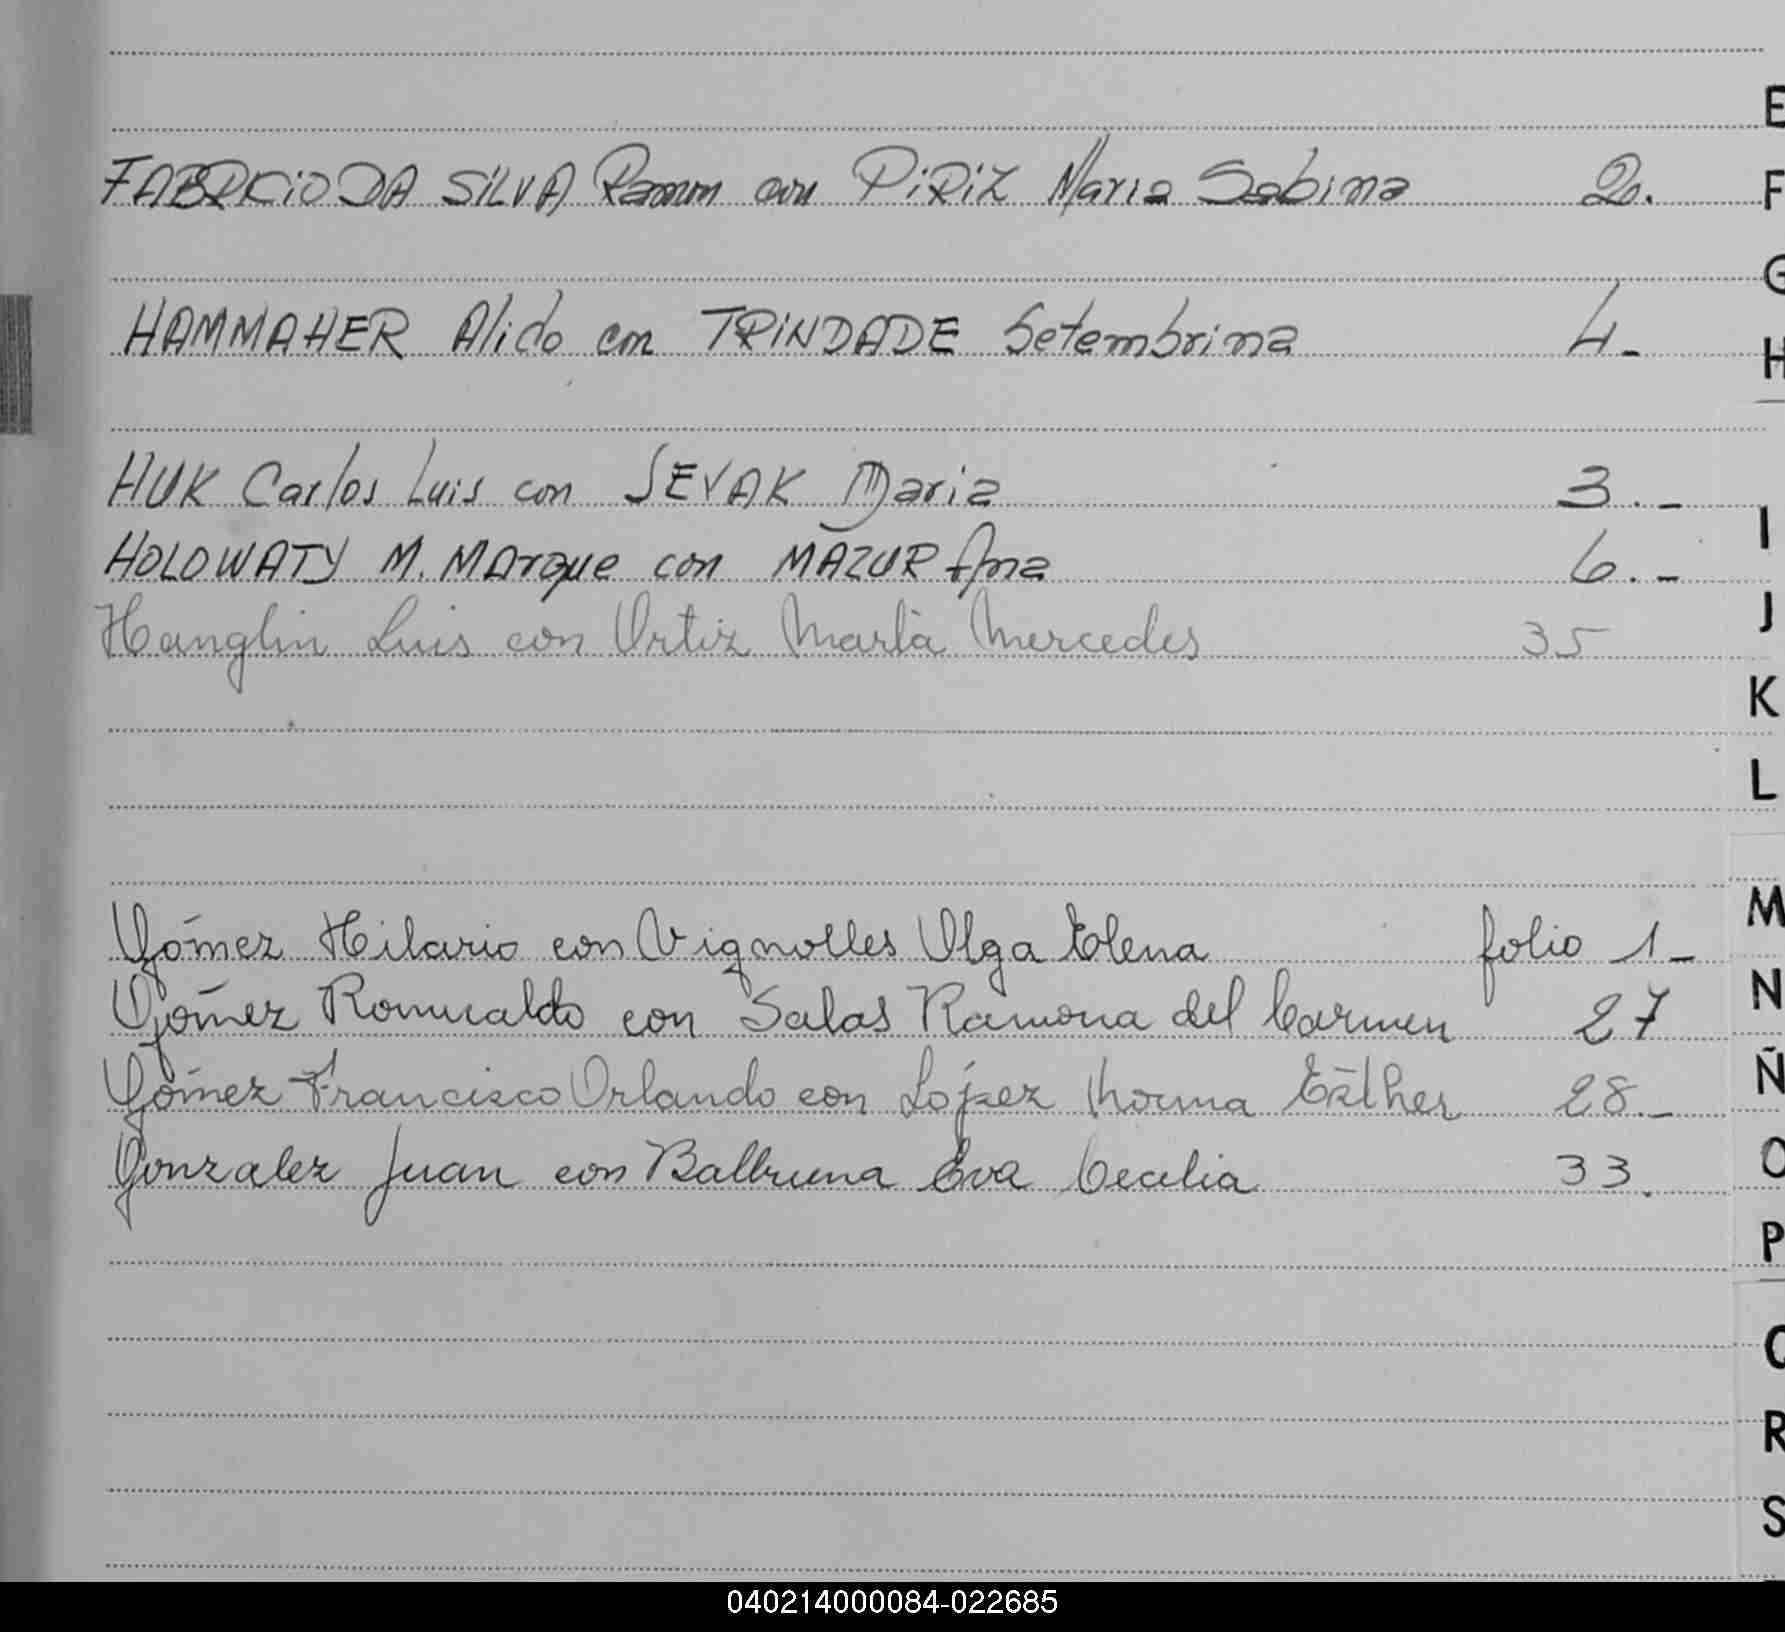 E
FABRCiO DA SiLVA Ramon con PiRiZ Maria Sabina 2.
F
G
HAMMAHER Alido con TRiNDADE Setembrina 4.-
H
HUK Carlos Luis con SEVAK Maria 3.-
I
HOLOWATY M. MArque con MAZUR Ana 6.-
Hanglin Luis con Ortiz María Mercedes 35
J
K
L
Gómez Hilario con Vignolles Olga Elena folio 1-
M
Gómez Romualdo con Salas Ramona del Carmen 27
N
Gómez Francisco Orlando con López Norma Esther 28.-
Ñ
Gonzalez Juan con Balbuena Eva Cecilia 33.
O
P
Q
R
S
040214000084-022685